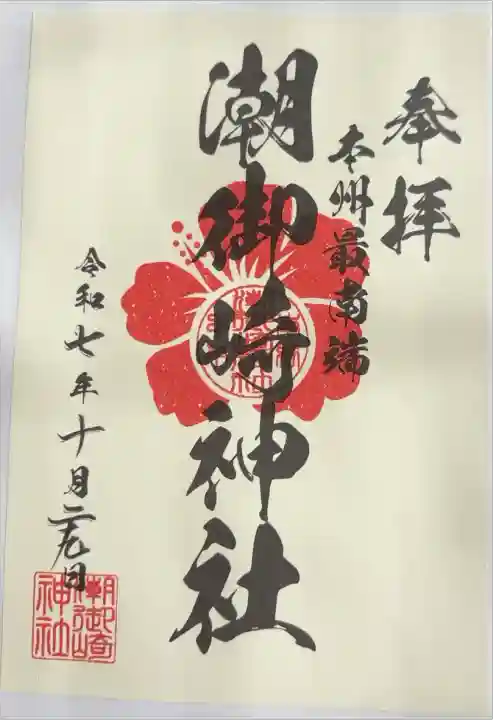 奉拝
本州最南端
潮御崎神社
令和七年十月二九日
潮御崎
神社